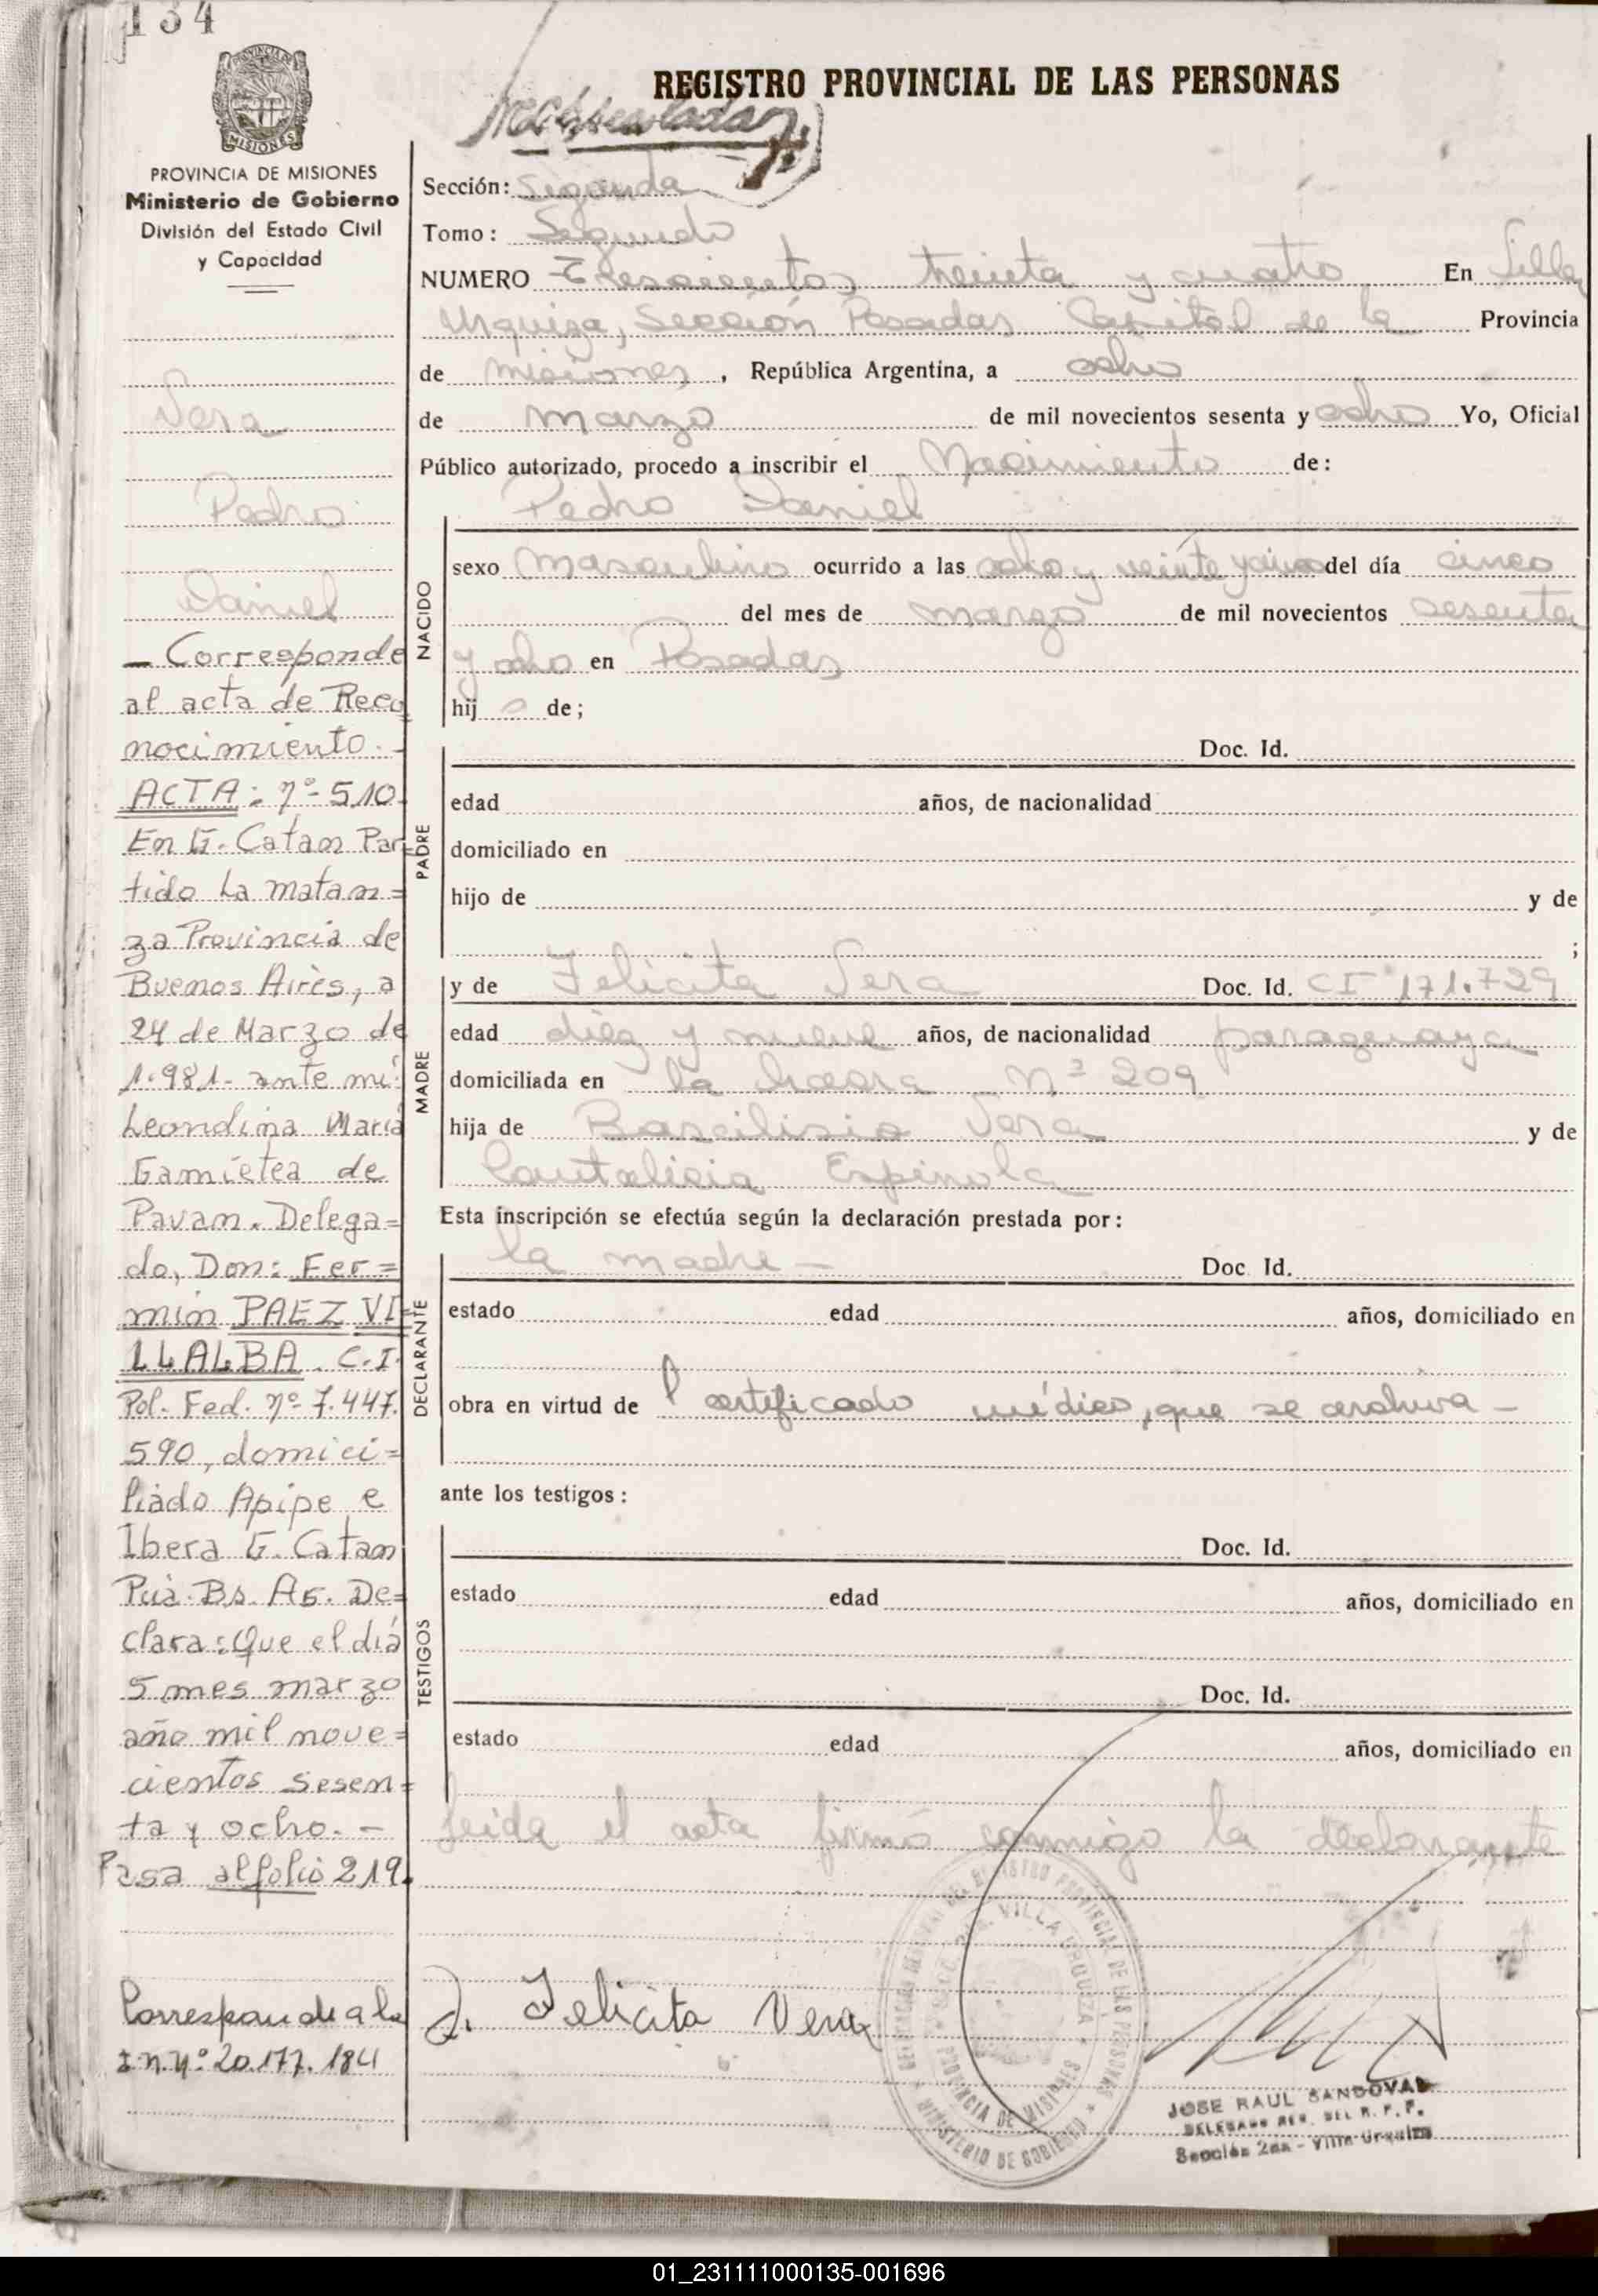 134
PROVINCIA DE MISIONES
MISIONES
PROVINCIA DE MISIONES
Ministerio de Gobierno
División del Estado Civil
y Capacidad
Vera
Pedro
Daniel
— Corresponde
al acta de Reco
nocimiento. -
ACTA: nº- 510.
En G. Catan Par=
tido La Matan=
za Provincia de
Buenos Aires, a
24 de Marzo de
1.981- ante mi:
Leondina Maria
de
Pavan. Delega=
do, Don: Fer=
min PAEZ VI=
LLALBA. C.I.
Pol. Fed. nº- 7.447.
590, domici=
liado Apipe e
Ibera G. Catan
Pcia. Bs. As. De=
clara: Que el dia
5 mes marzo
año mil nove=
cientos sesen=
ta y ocho. -
Pasa al folio 219.
Corresponde a la
nº 20.177.184
REGISTRO PROVINCIAL DE LAS PERSONAS
Sección: Segunda
Tomo: Segundo
NUMERO Trescientos treinta y cuatro En Villa
Urquiza, Sección Posadas Capital de la Provincia
de misiones, República Argentina, a ocho
de marzo de mil novecientos sesenta y ocho Yo, Oficial
Público autorizado, procedo a inscribir el Nacimiento de:
Pedro Daniel
NACIDO
sexo masculino ocurrido a las ocho y veinte y cinco del día cinco
del mes de marzo de mil novecientos sesenta
y ocho en Posadas
hij o de;
PADRE
Doc. Id.
edad años, de nacionalidad
domiciliado en
hijo de y de
;
MADRE
y de Felicita Vera Doc. Id. CI 171.729
edad diez y nueve años, de nacionalidad paraguaya
domiciliada en la chacra Nº 209
hija de Vera y de
Espinola
Esta inscripción se efectúa según la declaración prestada por:
DECLARANTE
la madre — Doc. Id.
estado edad años, domiciliado en
obra en virtud de certificado médico, que se archiva —
ante los testigos:
TESTIGOS
Doc. Id.
estado edad años, domiciliado en
Doc. Id.
estado edad años, domiciliado en
leida el acta firmó conmigo la declarante
Felicita Vera
VILLA URQUIZA
PROVINCIA DE MISIONES
MINISTERIO DE GOBIERNO
JOSE RAUL SANDOVAL
DELEGADO REG. DEL R. P. P.
Sección 2da - Villa Urquiza
01_231111000135-001696